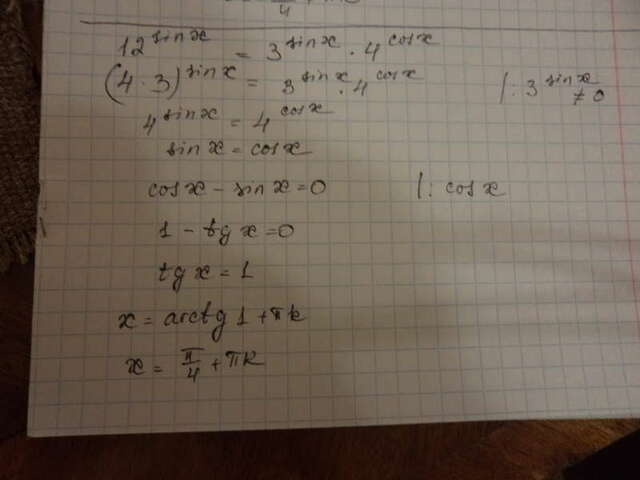 4
12^sin x = 3^sin x · 4^cos x
(4 · 3)^sin x = 3^sin x · 4^cos x |: 3^sin x ≠ 0
4^sin x = 4^cos x
sin x = cos x
cos x - sin x = 0 |: cos x
1 - tg x = 0
tg x = 1
x = arctg 1 + πk
x = π/4 + πk